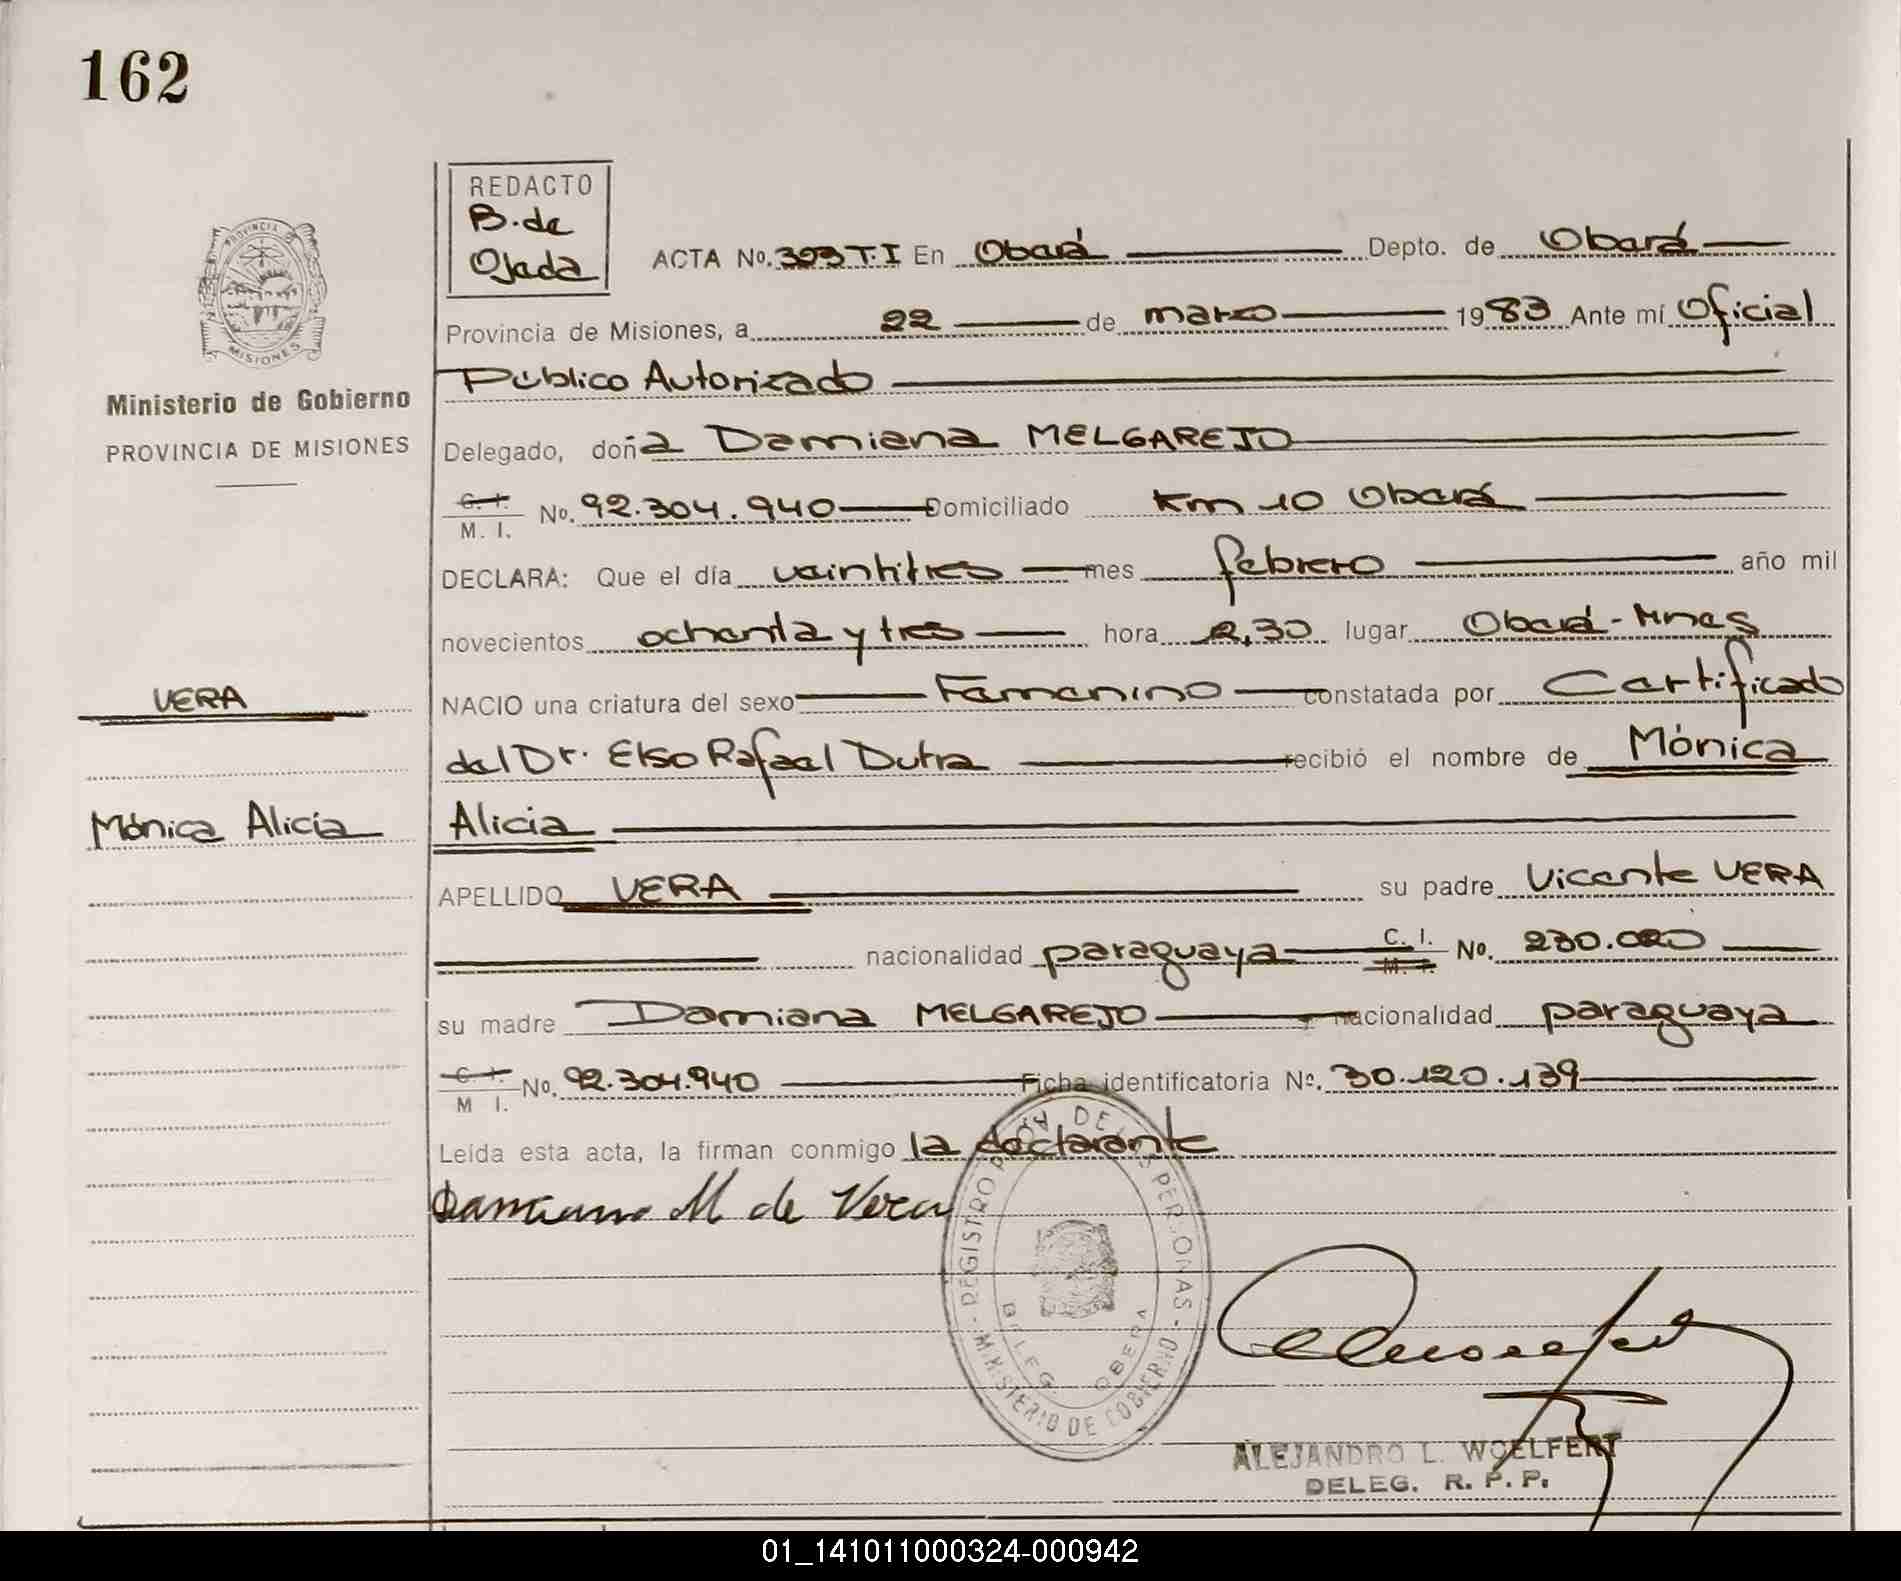 162
REDACTO
B. de
Ojeda
PROVINCIA DE
MISIONES
Ministerio de Gobierno
PROVINCIA DE MISIONES
ACTA No. 303 T. I En Oberá Depto. de Oberá
Provincia de Misiones, a 22 de marzo 1983 Ante mí Oficial
Público Autorizado
Delegado, doña Damiana MELGAREJO
C. I.
M. I. No. 92.304.940 Domiciliado Km 10 Oberá
DECLARA: Que el día veintitres mes febrero año mil
novecientos ochenta y tres hora 2,30 lugar Oberá - Mnes
VERA
NACIO una criatura del sexo Femenino constatada por Certificado
del Dr. Elso Rafael Dutra recibió el nombre de Mónica
Mónica Alicia
Alicia
APELLIDO VERA su padre Vicente VERA
nacionalidad paraguaya C. I. M. I. No. 230.020
su madre Damiana MELGAREJO nacionalidad paraguaya
C. I.
M. I. No. 92.304.940 Ficha identificatoria No. 30.120.139
Leída esta acta, la firman conmigo la declarante
Damiana M de Vera
REGISTRO PCIAL DE LAS PERSONAS - MINISTERIO DE GOBIERNO -
DELEG. OBERA
ALEJANDRO L. WOELFERT
DELEG. R. P. P.
01_141011000324-000942